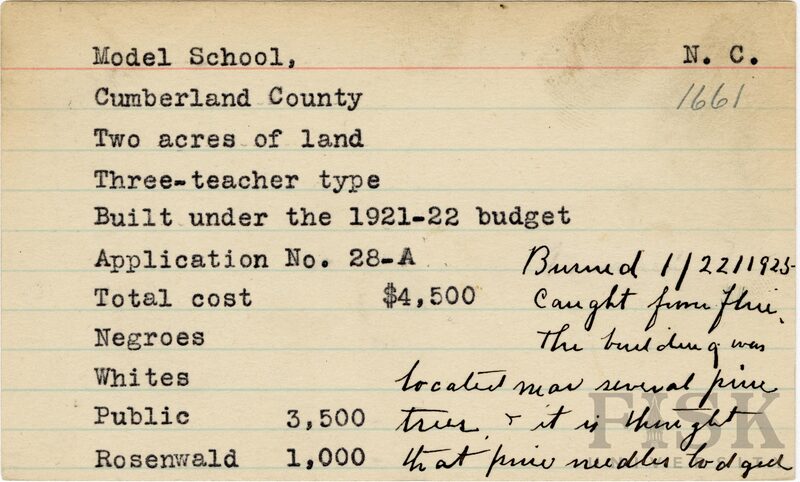 Model School, N. C.
Cumberland County 1661
Two acres of land
Three-teacher type
Built under the 1921-22 budget
Application No. 28-A
Total cost $4,500
Negroes
Whites
Public 3,500
Rosenwald 1,000
Burned 1/22/1925
Caught from flue.
The building was
located near several pine
trees & it is thought
that pine needles lodged
FISK
UNIVERSITY